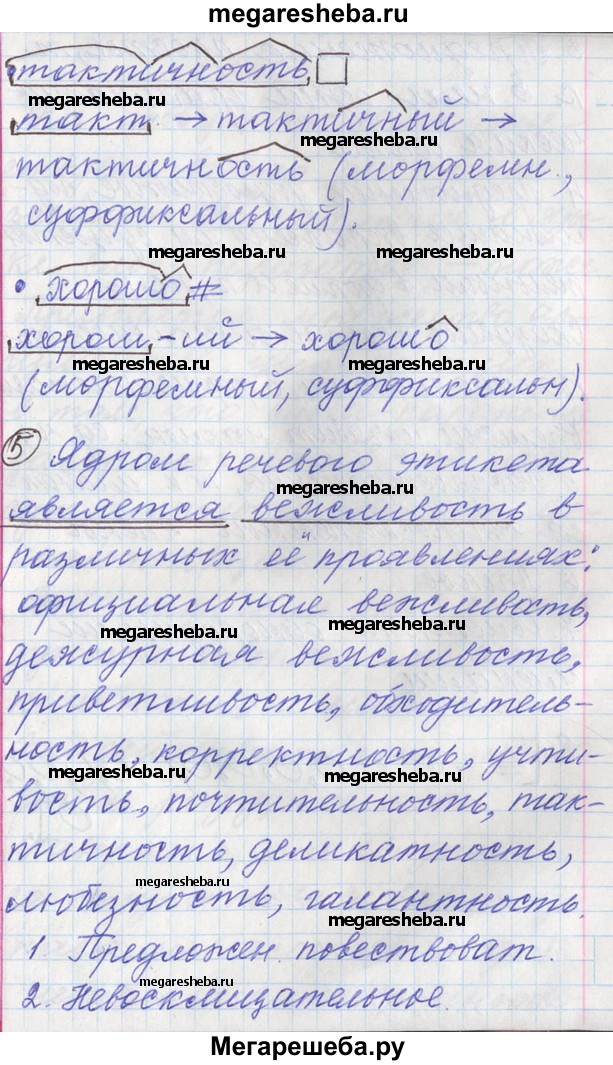 megaresheba.ru
• тактичность
megaresheba.ru
такт → тактичный →
megaresheba.ru
тактичность (морфемн.,
суффиксальный).
megaresheba.ru megaresheba.ru
• хорошо #
хорош-ий → хорошо
megaresheba.ru megaresheba.ru
(морфемный, суффиксальн).
5 Ядром речевого этикета
megaresheba.ru
является вежливость в
различных её проявлениях:
официальная вежливость,
megaresheba.ru megaresheba.ru
дежурная вежливость,
приветливость, обходитель-
ность, корректность, учти-
megaresheba.ru megaresheba.ru
вость, почтительность, так-
тичность, деликатность,
megaresheba.ru
любезность, галантность.
megaresheba.ru
1. Предложен. повествоват.
megaresheba.ru megaresheba.ru
2. Невосклицательное.
Мегарешеба.ру